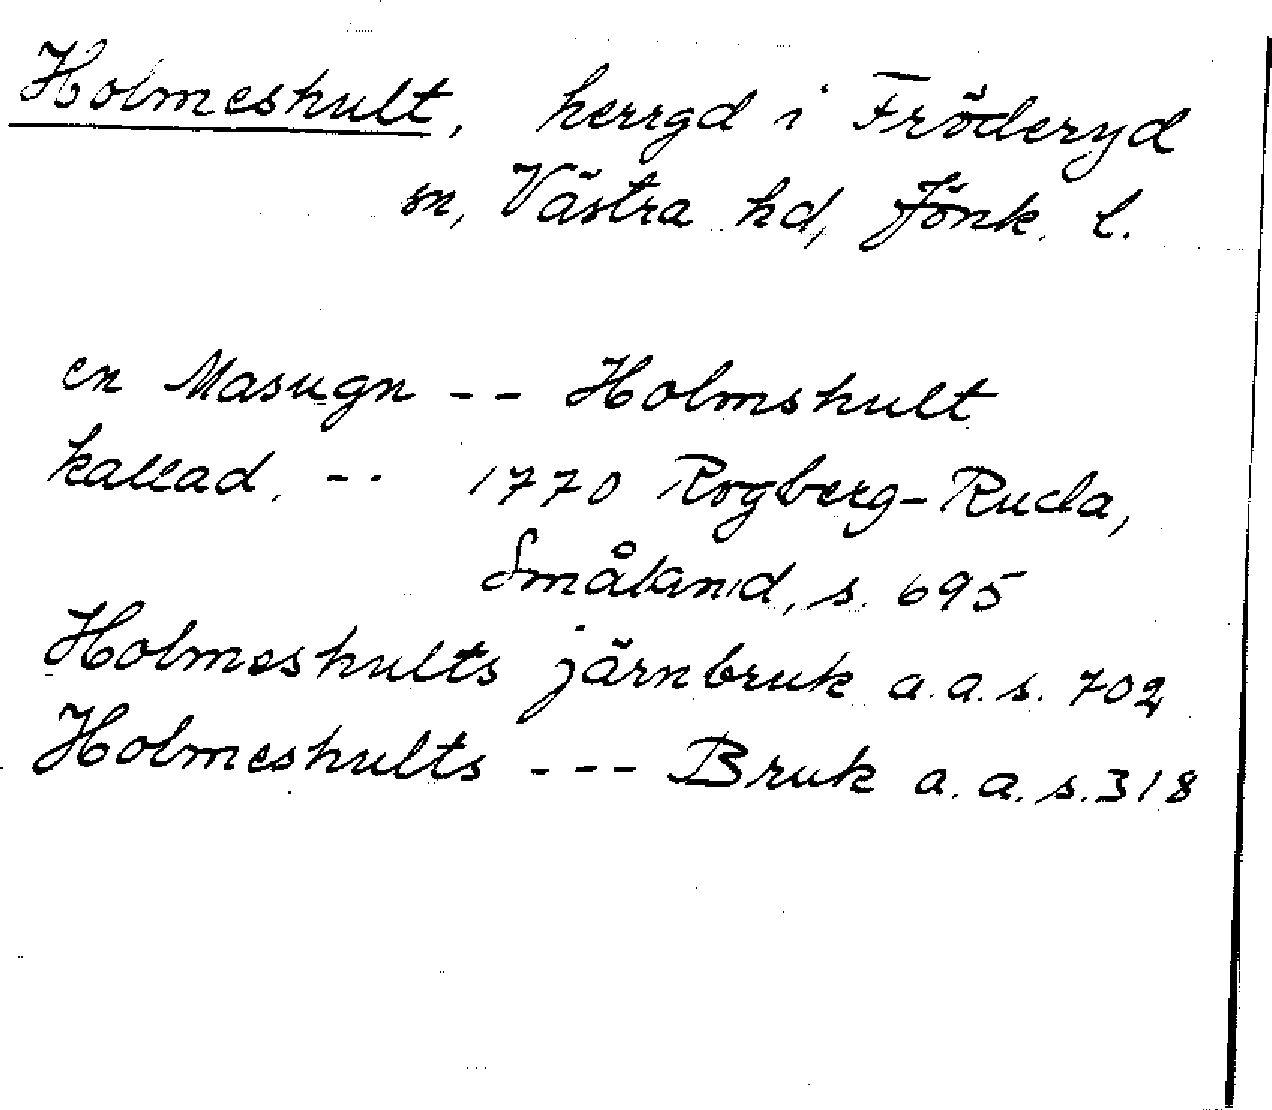 Holmeshult, herrgd i Fröderyd
sn, Västra hd, Jönk. l.
en Masugn -- Holmshult
kallad. -- 1770 Rogberg-Ruda,
Småland, s. 695
Holmeshults järnbruk a.a.s. 702
Holmeshults --- Bruk a.a.s. 318